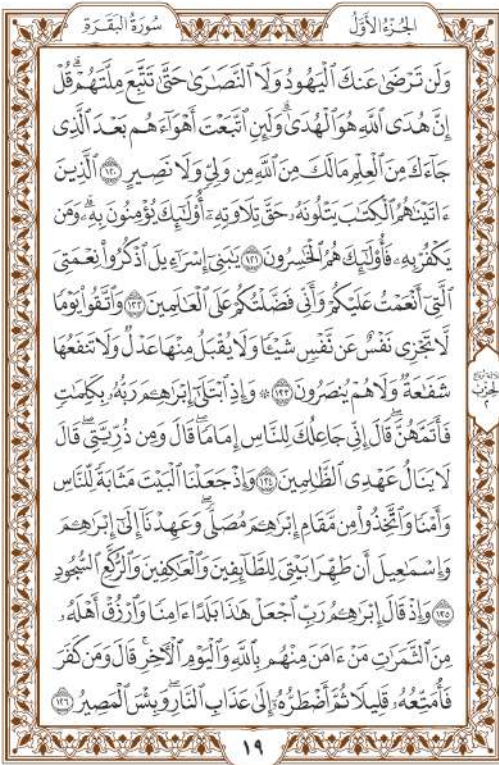 سُورَةُ البَقَرَةِ
الجُزْءُ الأَوَّلُ
وَلَن تَرْضَىٰ عَنكَ ٱلْيَهُودُ وَلَا ٱلنَّصَـٰرَىٰ حَتَّىٰ تَتَّبِعَ مِلَّتَهُمْ ۗ قُلْ
إِنَّ هُدَى ٱللَّهِ هُوَ ٱلْهُدَىٰ ۗ وَلَئِنِ ٱتَّبَعْتَ أَهْوَآءَهُم بَعْدَ ٱلَّذِى
جَآءَكَ مِنَ ٱلْعِلْمِ مَا لَكَ مِنَ ٱللَّهِ مِن وَلِىٍّ وَلَا نَصِيرٍ ١٢٠ ٱلَّذِينَ
ءَاتَيْنَـٰهُمُ ٱلْكِتَـٰبَ يَتْلُونَهُۥ حَقَّ تِلَاوَتِهِۦٓ أُو۟لَـٰٓئِكَ يُؤْمِنُونَ بِهِۦ ۗ وَمَن
يَكْفُرْ بِهِۦ فَأُو۟لَـٰٓئِكَ هُمُ ٱلْخَـٰسِرُونَ ١٢١ يَـٰبَنِىٓ إِسْرَٰٓءِيلَ ٱذْكُرُوا۟ نِعْمَتِىَ
ٱلَّتِىٓ أَنْعَمْتُ عَلَيْكُمْ وَأَنِّى فَضَّلْتُكُمْ عَلَى ٱلْعَـٰلَمِينَ ١٢٢ وَٱتَّقُوا۟ يَوْمًا
لَّا تَجْزِى نَفْسٌ عَن نَّفْسٍ شَيْـًٔا وَلَا يُقْبَلُ مِنْهَا عَدْلٌ وَلَا تَنفَعُهَا
شَفَـٰعَةٌ وَلَا هُمْ يُنصَرُونَ ١٢٣ ۞ وَإِذِ ٱبْتَلَىٰٓ إِبْرَٰهِـۧمَ رَبُّهُۥ بِكَلِمَـٰتٍ
فَأَتَمَّهُنَّ ۖ قَالَ إِنِّى جَاعِلُكَ لِلنَّاسِ إِمَامًا ۖ قَالَ وَمِن ذُرِّيَّتِى ۖ قَالَ
لَا يَنَالُ عَهْدِى ٱلظَّـٰلِمِينَ ١٢٤ وَإِذْ جَعَلْنَا ٱلْبَيْتَ مَثَابَةً لِّلنَّاسِ
وَأَمْنًا وَٱتَّخِذُوا۟ مِن مَّقَامِ إِبْرَٰهِـۧمَ مُصَلًّى ۖ وَعَهِدْنَآ إِلَىٰٓ إِبْرَٰهِـۧمَ
وَإِسْمَـٰعِيلَ أَن طَهِّرَا بَيْتِىَ لِلطَّآئِفِينَ وَٱلْعَـٰكِفِينَ وَٱلرُّكَّعِ ٱلسُّجُودِ
١٢٥ وَإِذْ قَالَ إِبْرَٰهِـۧمُ رَبِّ ٱجْعَلْ هَـٰذَا بَلَدًا ءَامِنًا وَٱرْزُقْ أَهْلَهُۥ
مِنَ ٱلثَّمَرَٰتِ مَنْ ءَامَنَ مِنْهُم بِٱللَّهِ وَٱلْيَوْمِ ٱلْـَٔاخِرِ ۖ قَالَ وَمَن كَفَرَ
فَأُمَتِّعُهُۥ قَلِيلًا ثُمَّ أَضْطَرُّهُۥٓ إِلَىٰ عَذَابِ ٱلنَّارِ ۖ وَبِئْسَ ٱلْمَصِيرُ ١٢٦
الحِزْبُ
٢
١٩